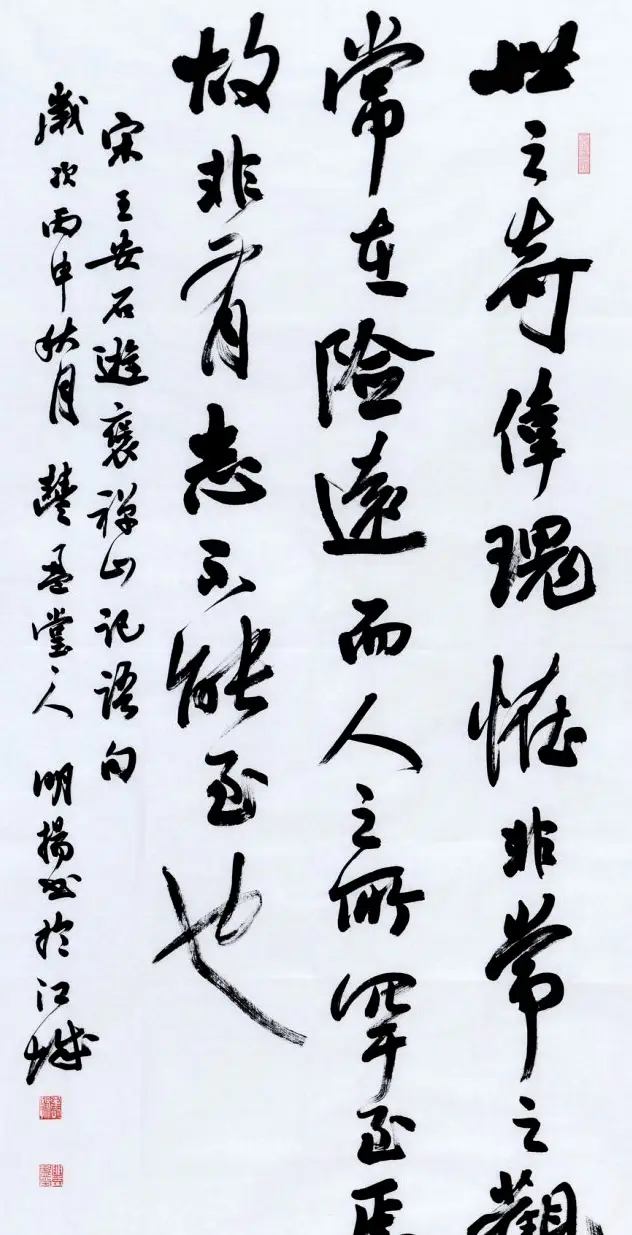 世之奇偉瑰怪非常之觀
常在險遠而人之所罕至焉
故非有志不能至也
宋王安石遊褒禪山記語句
歲次丙申秋月豐盈堂人明揚書於江城